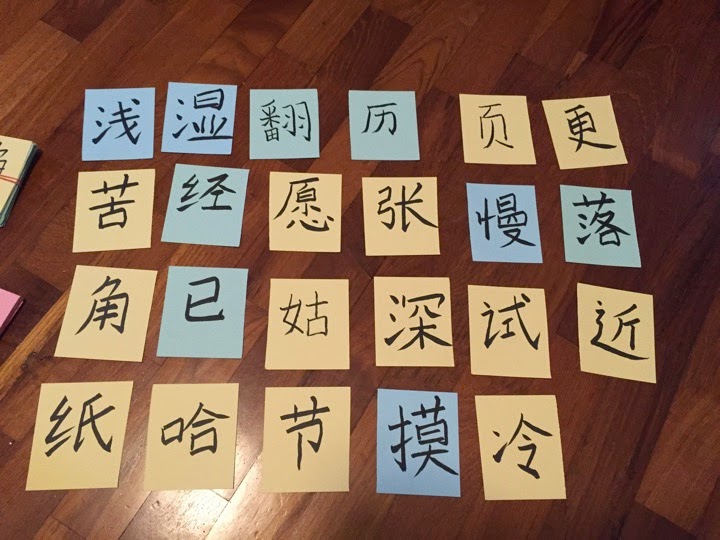 浅 湿 翻 历 页 更
苦 经 愿 张 慢 落
角 已 姑 深 试 近
纸 哈 节 摸 冷